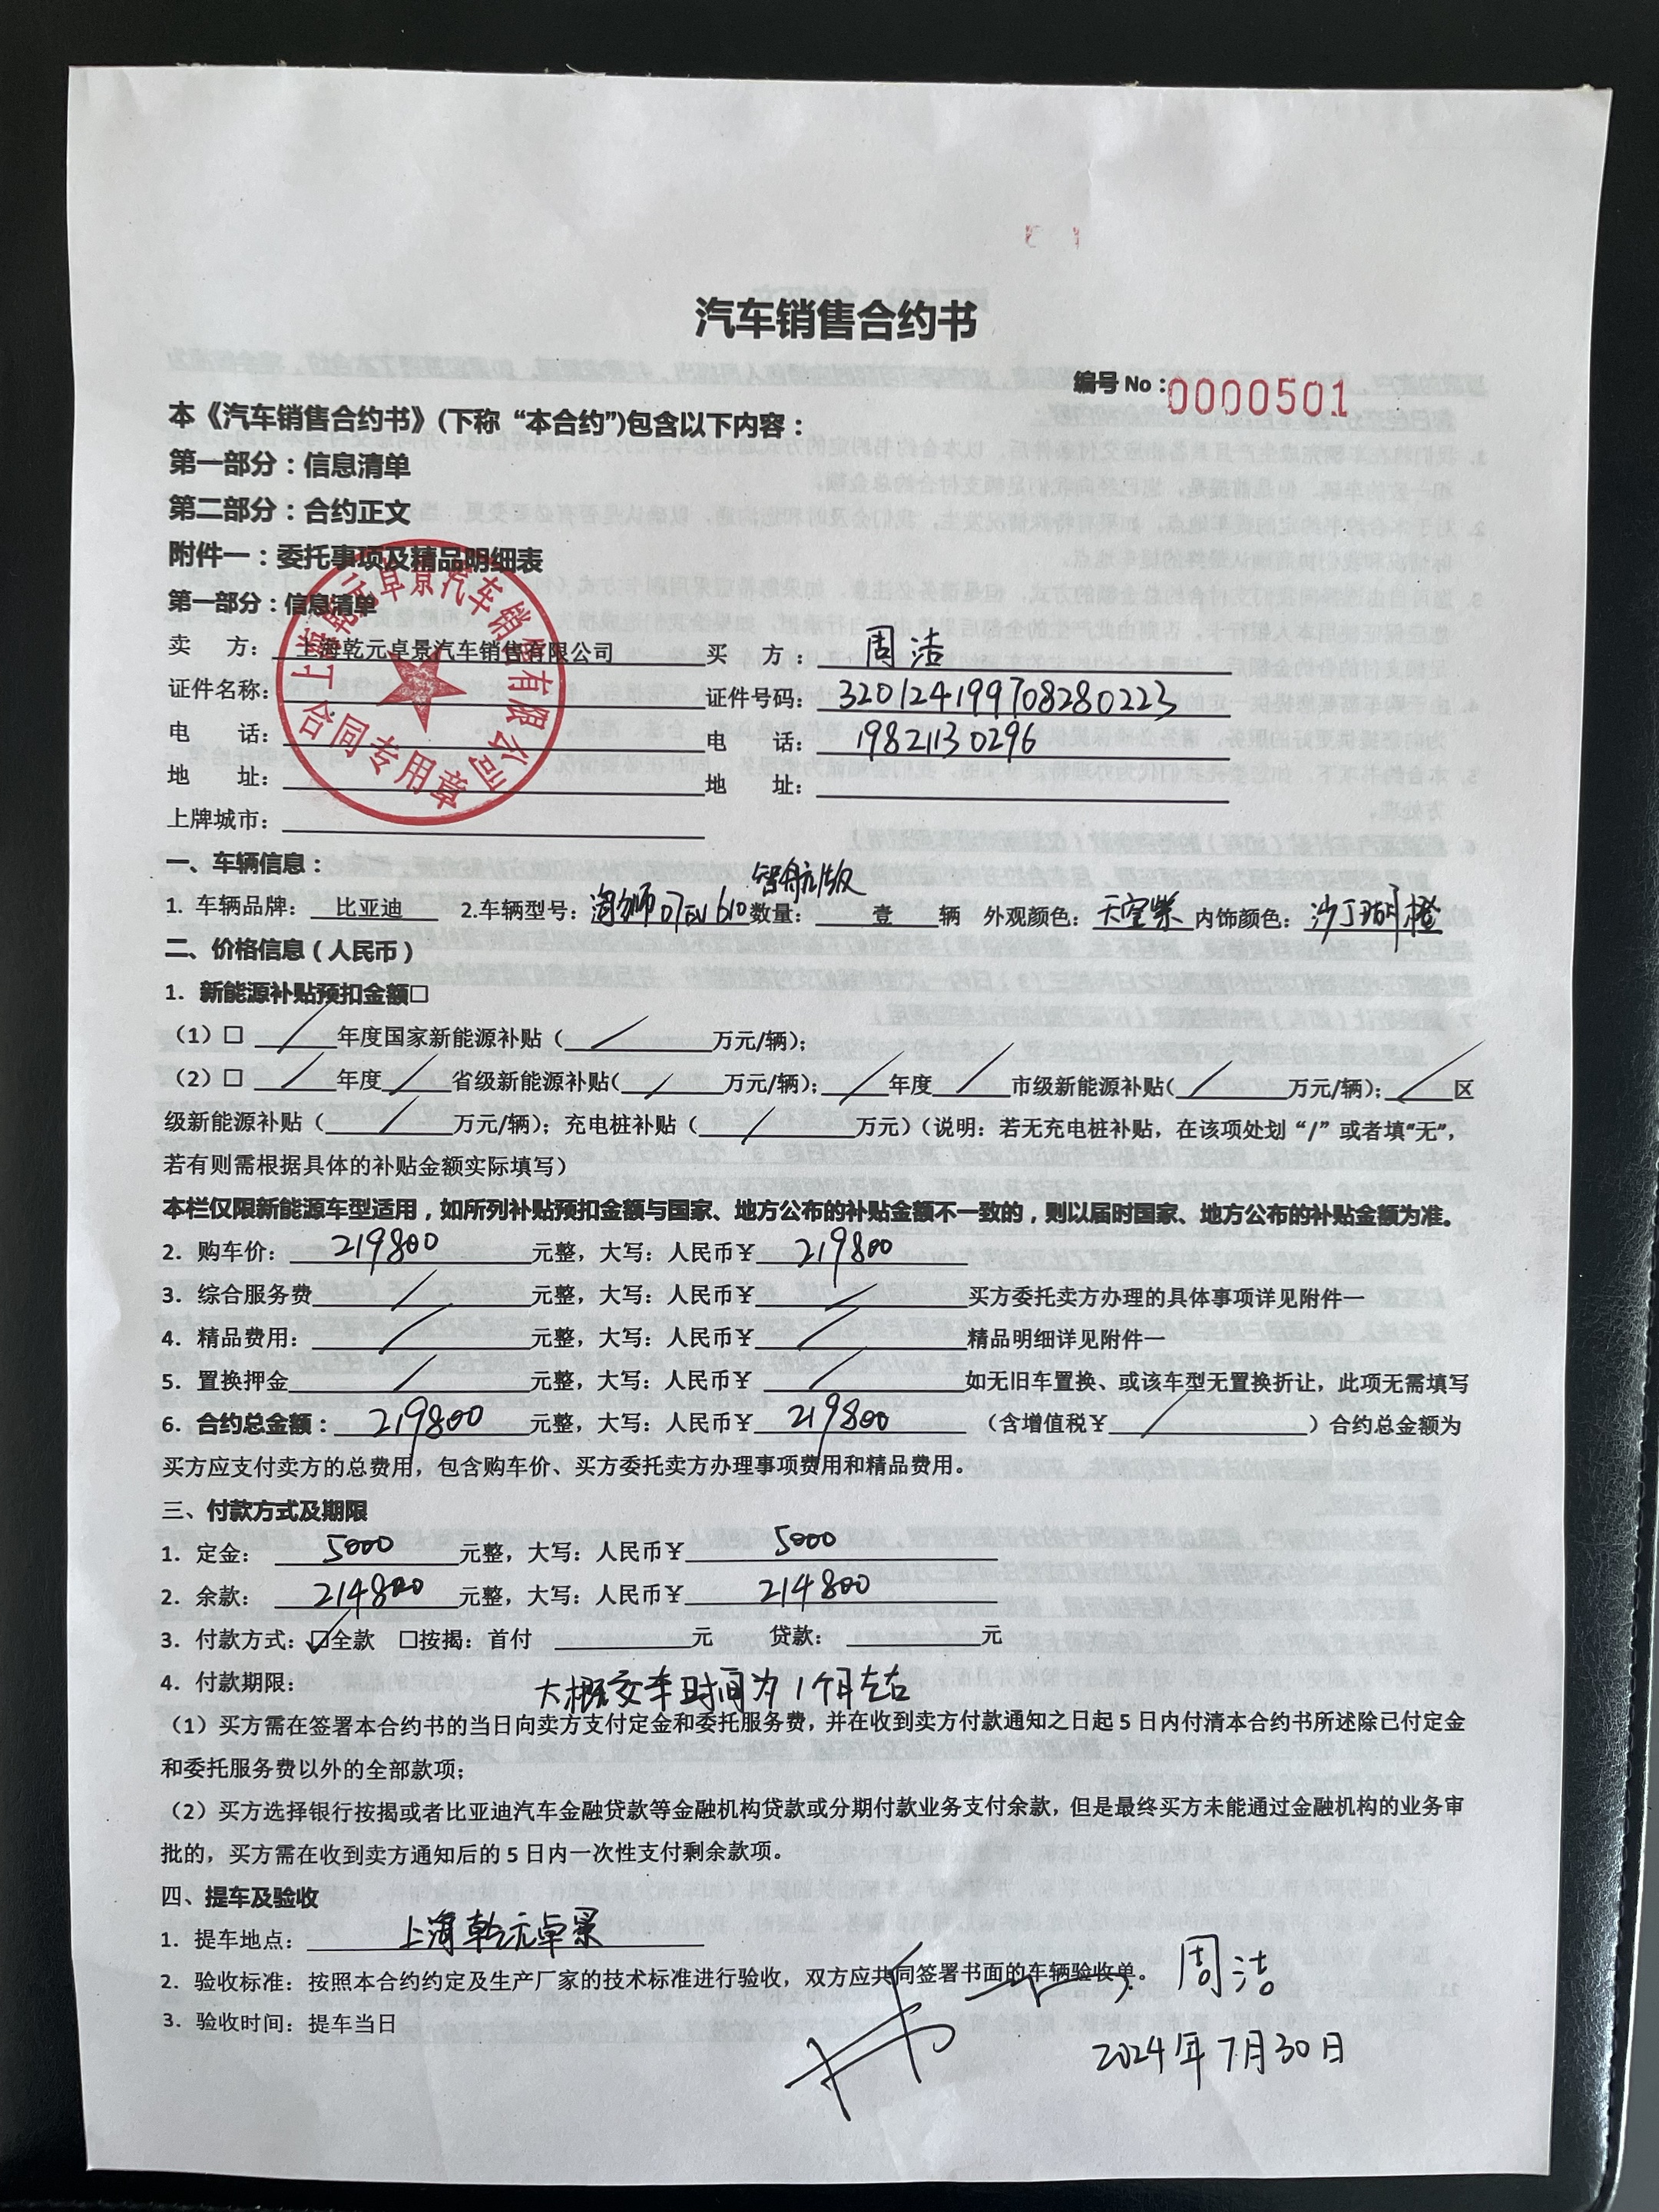 汽车销售合约书
编号 No：0000501
本《汽车销售合约书》(下称“本合约”)包含以下内容：
第一部分：信息清单
第二部分：合约正文
附件一：委托事项及精品明细表
第一部分：信息清单
卖 方： 上海乾元卓景汽车销售有限公司 买 方： 周洁
证件名称： 证件号码： 320124199708280223
电 话： 电 话： 19821130296
地 址： 地 址：
上牌城市：
上海乾元卓景汽车销售有限公司
合同专用章
一、车辆信息：
智航版
1. 车辆品牌： 比亚迪 2.车辆型号： 海狮07EV 610 数量： 壹 辆 外观颜色： 天空紫 内饰颜色： 沙丁瑚橙
二、价格信息（人民币）
1. 新能源补贴预扣金额□
（1）□ / 年度国家新能源补贴（ / 万元/辆）；
（2）□ / 年度 / 省级新能源补贴( / 万元/辆)； / 年度 / 市级新能源补贴( / 万元/辆)； / 区
级新能源补贴（ / 万元/辆）；充电桩补贴（ / 万元）（说明：若无充电桩补贴，在该项处划“/”或者填“无”，
若有则需根据具体的补贴金额实际填写）
本栏仅限新能源车型适用，如所列补贴预扣金额与国家、地方公布的补贴金额不一致的，则以届时国家、地方公布的补贴金额为准。
2. 购车价： 219800 元整，大写：人民币￥ 219800
3. 综合服务费 / 元整，大写：人民币￥ / 买方委托卖方办理的具体事项详见附件一
4. 精品费用： / 元整，大写：人民币￥ / 精品明细详见附件一
5. 置换押金 / 元整，大写：人民币￥ / 如无旧车置换、或该车型无置换折让，此项无需填写
6. 合约总金额： 219800 元整，大写：人民币￥ 219800 （含增值税￥ / ）合约总金额为
买方应支付卖方的总费用，包含购车价、买方委托卖方办理事项费用和精品费用。
三、付款方式及期限
1. 定金： 5000 元整，大写：人民币￥ 5000
2. 余款： 214800 元整，大写：人民币￥ 214800
3. 付款方式：☑全款 □按揭：首付 元 贷款： 元
4. 付款期限： 大概交车时间为1个月左右
（1）买方需在签署本合约书的当日向卖方支付定金和委托服务费，并在收到卖方付款通知之日起 5 日内付清本合约书所述除已付定金
和委托服务费以外的全部款项；
（2）买方选择银行按揭或者比亚迪汽车金融贷款等金融机构贷款或分期付款业务支付余款，但是最终买方未能通过金融机构的业务审
批的，买方需在收到卖方通知后的 5 日内一次性支付剩余款项。
四、提车及验收
1. 提车地点： 上海乾元卓景
2. 验收标准：按照本合约约定及生产厂家的技术标准进行验收，双方应共同签署书面的车辆验收单。
3. 验收时间：提车当日
周洁
2024年7月30日